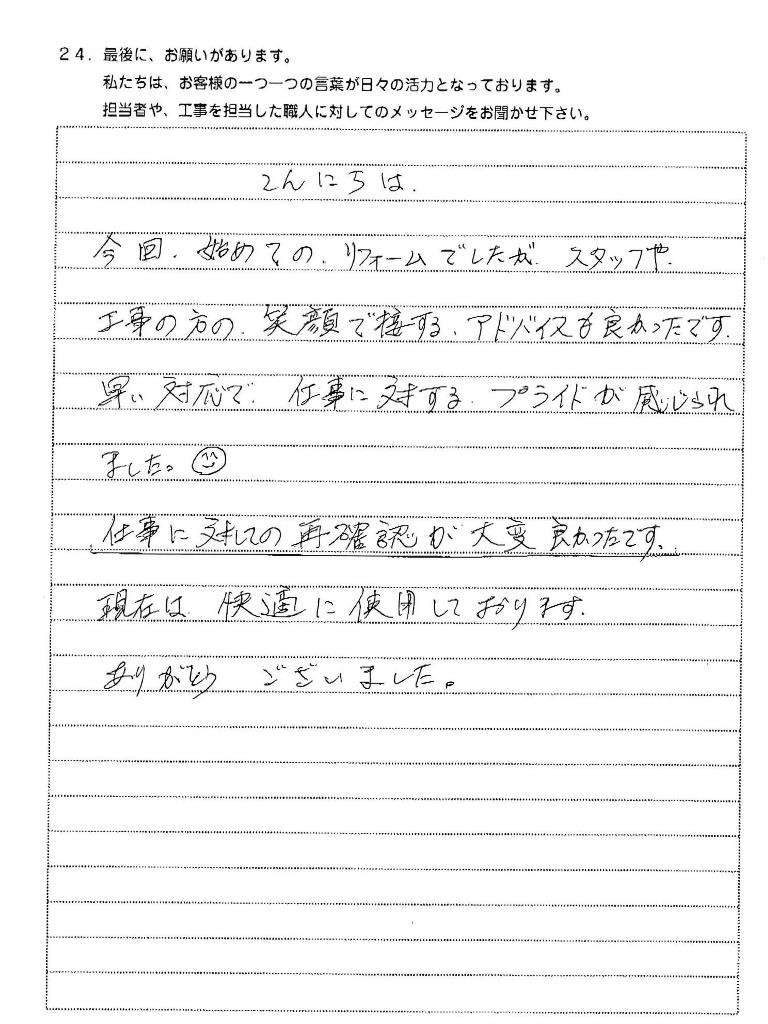 24. 最後に、お願いがあります。
私たちは、お客様の一つ一つの言葉が日々の活力となっております。
担当者や、工事を担当した職人に対してのメッセージをお聞かせ下さい。
こんにちは.
今回.始めての.リフォームでしたが.スタッフや.
工事の方の.笑顔で接する.アドバイスも良かったです.
早い対応で.仕事に対する.プライドが感じられ
ました。
仕事に対しての再確認が大変良かったです.
現在は快適に使用しております.
ありがとうございました。